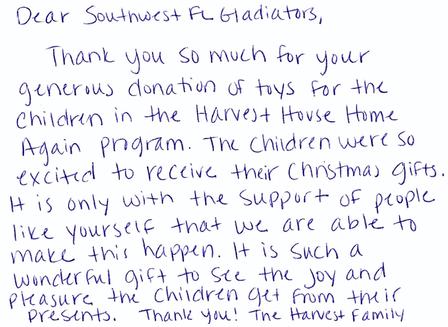 Dear Southwest FL Gladiators,
Thank you so much for your
generous donation of toys for the
children in the Harvest House Home
Again program. The children were so
excited to receive their Christmas gifts.
It is only with the support of people
like yourself that we are able to
make this happen. It is such a
wonderful gift to see the joy and
pleasure the children get from their
presents. Thank you! The Harvest Family